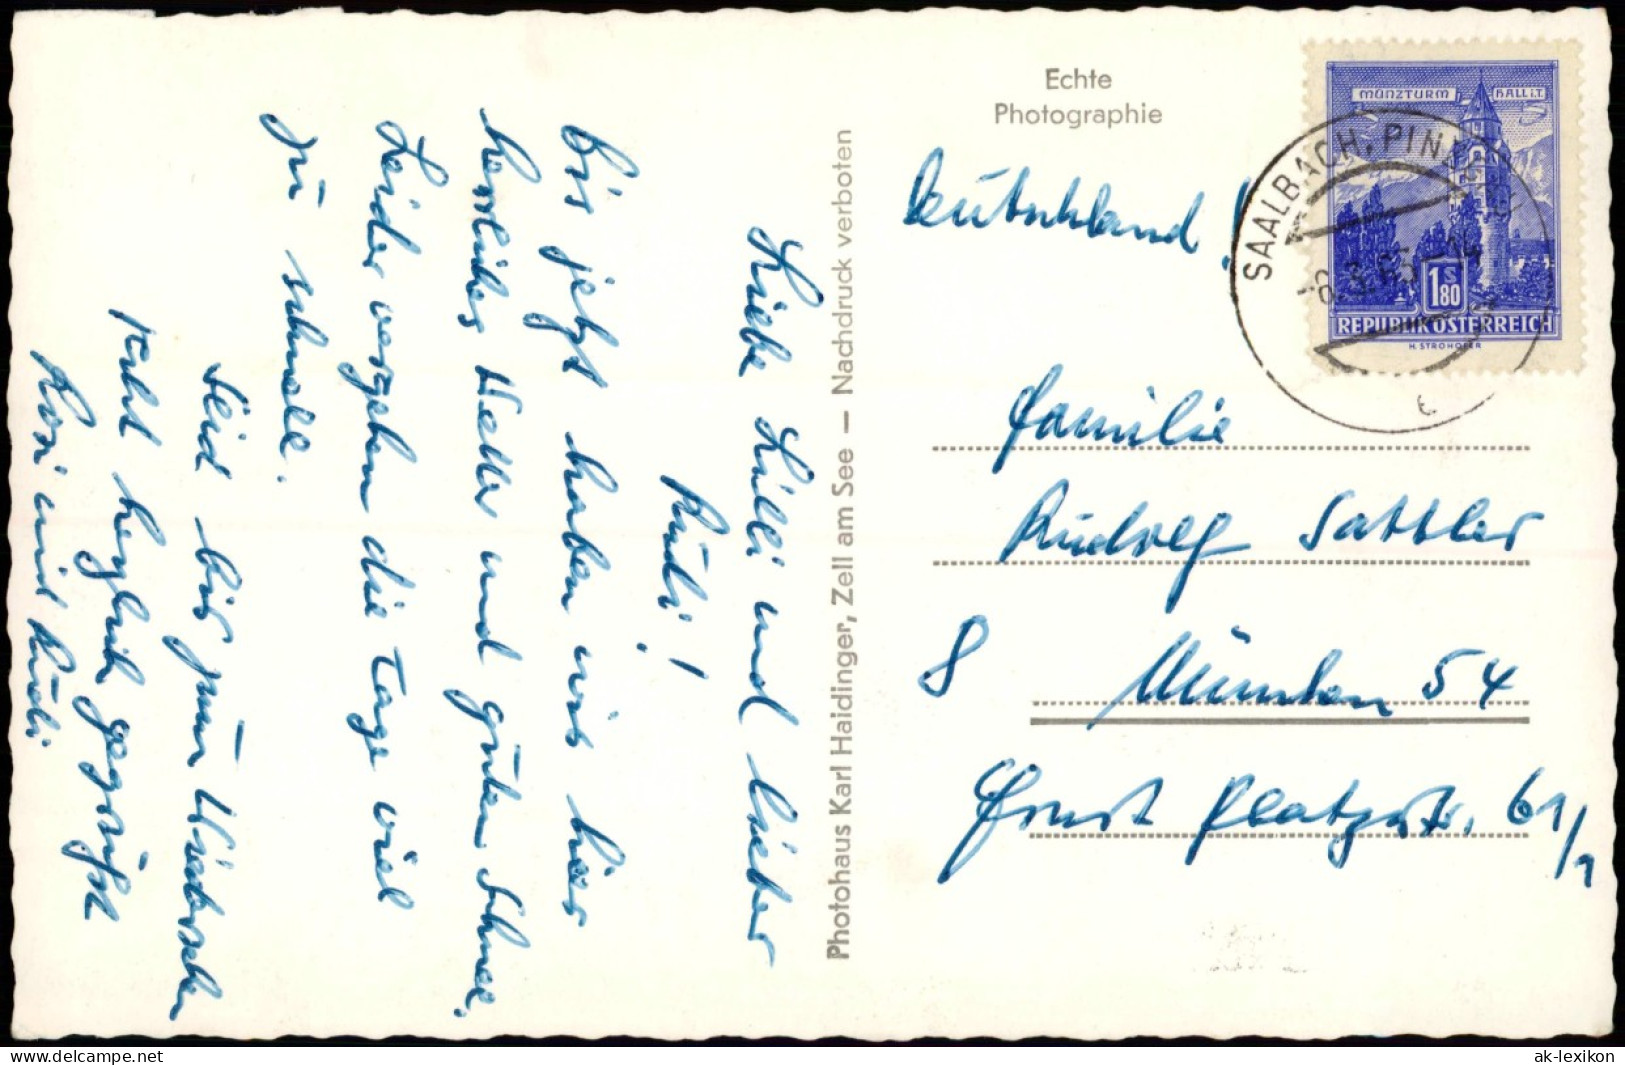 Echte
Photographie
Deutschland!
MÜNZTURM HALL i.T.
1 S 80
REPUBLIK ÖSTERREICH
H. STROHOFER
SAALBACH, PIN
Familie
Rudolf Sattler
8 München 54
Ernst Platzstr. 61/1
Photohaus Karl Haidinger, Zell am See — Nachdruck verboten
Liebe Lilli und lieber
Rudi!
Bis jetzt haben wir hier
herrliches Wetter und guten Schnee.
Leider vergehen die Tage viel
zu schnell.
Seid bis zum Wiedersehen
recht herzlich gegrüßt
Rosi und Rudi
ak-lexikon.com
the-world-wide-collectors-market.com